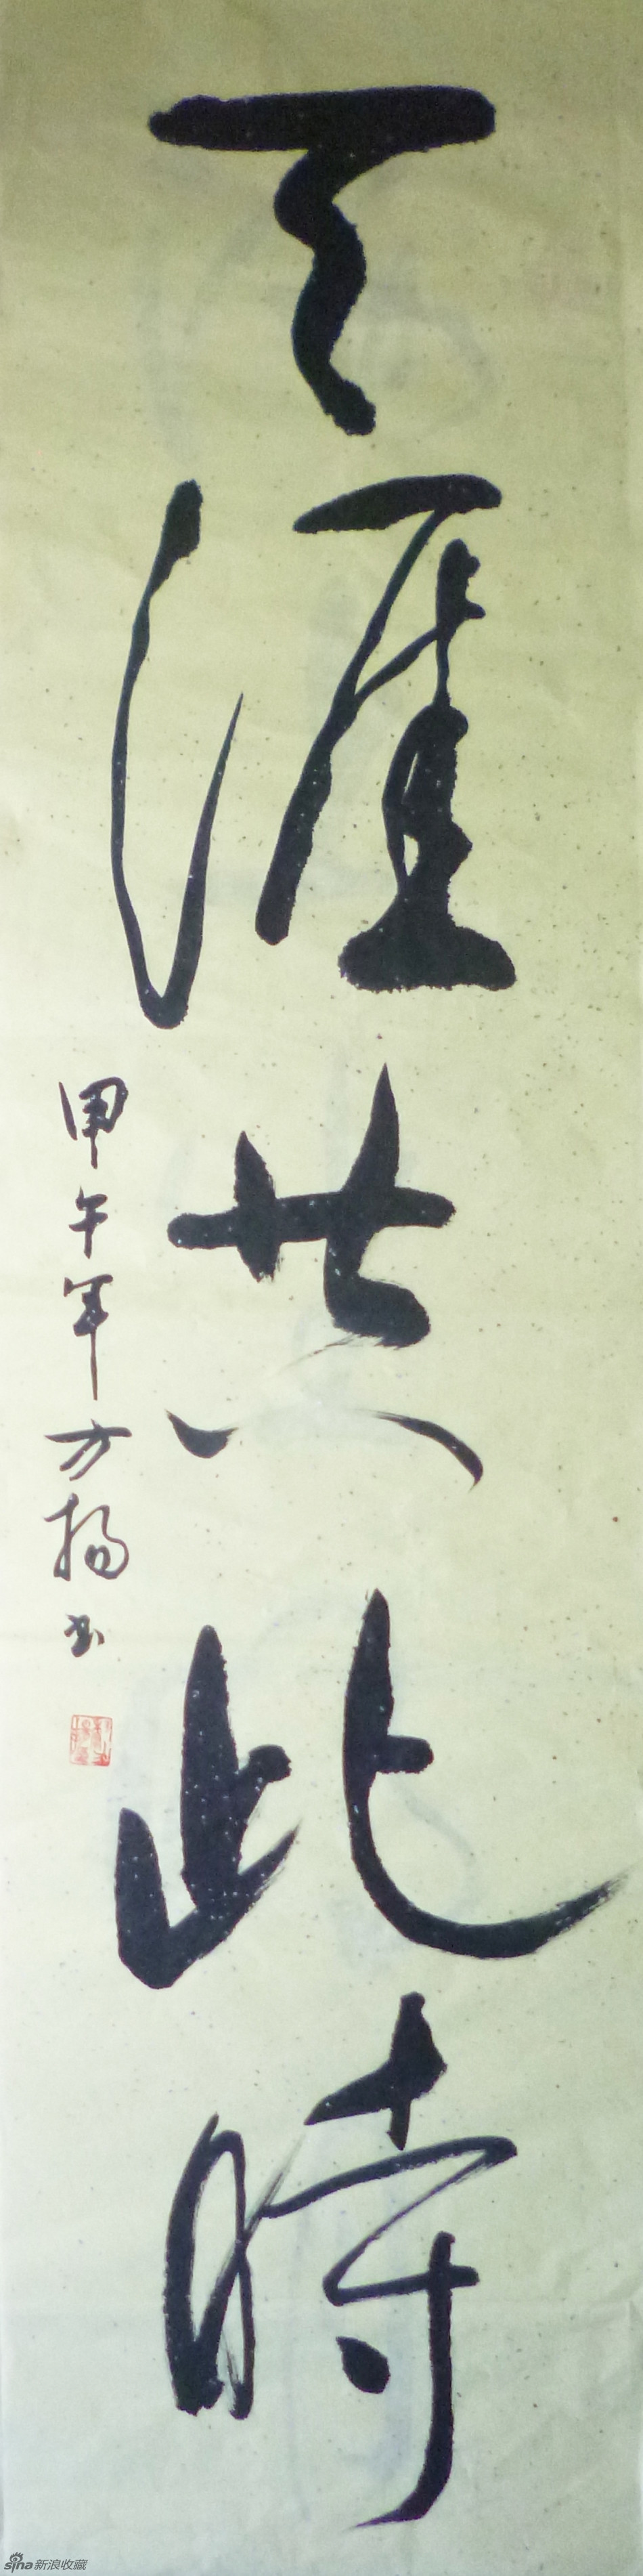 天涯共此時
甲午年方揚书
sina新浪收藏